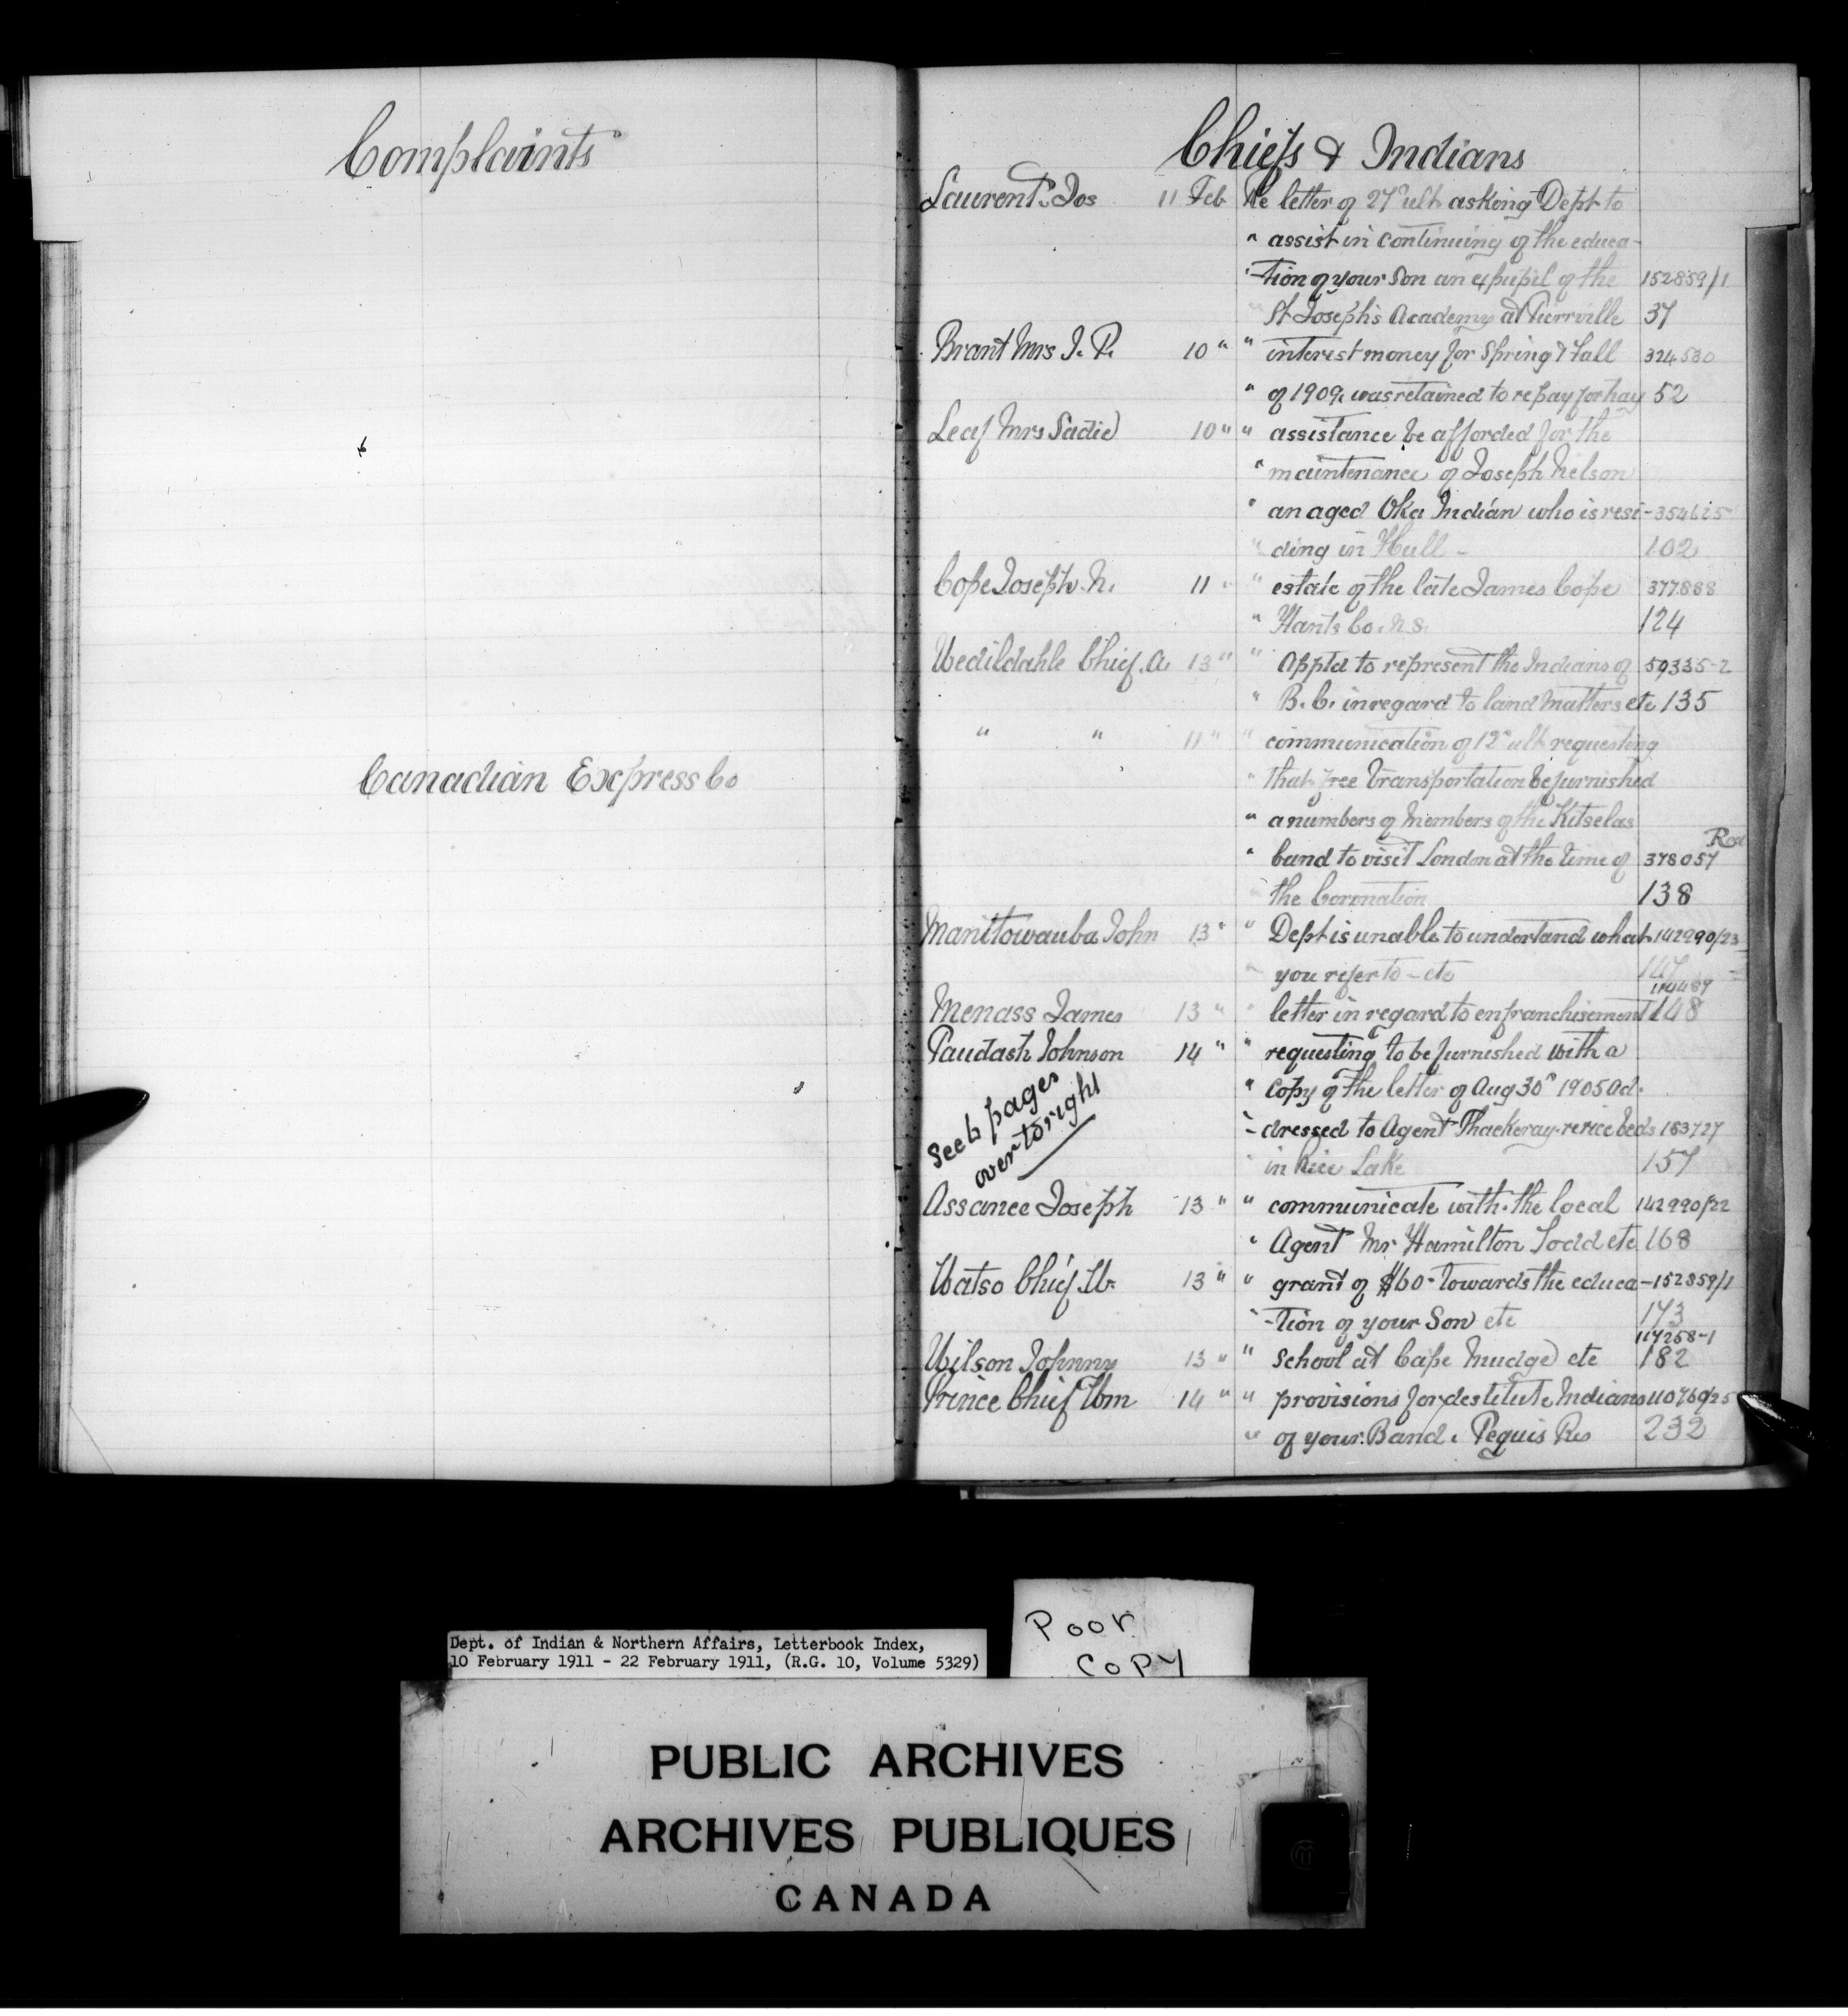 Complaints
Canadian Express Co
Chiefs & Indians
Laurent Jos 11 Feb Re letter of 27" ult asking Dept to
" assist in continuing of the educa-
"-tion of your Son an expupil of the 152859/1
" St Joseph's Academy at Pierrville 37
Brant Mrs J. P. 10 " " interest money for Spring & Fall 324530
" of 1909, was retained to repay for hay 52
Leaf Mrs Sadie 10 " " assistance be afforded for the
" maintenance of Joseph Nelson
" an aged Oka Indian who is resi- 354615
" ding in Hull - 102
Cope Joseph. N. 11 " " estate of the late James Cope 377888
" Hants Co. N.S. 124
Wedildahle Chief. A. 13 " " Appt'd to represent the Indians of 59335-2
" B. C. in regard to land matters etc 135
" " 11 " " communication of 12" ult requesting
" that free transportation be furnished
" a numbers of Members of the Kitselas
" band to visit London at the time of 378057
" the Coronation 138
Manitowauba John 13 " " Dept is unable to undertand what 142990/23
" you refer to - etc 147
Menass James 13 " " letter in regard to enfranchisement 114489 148
Paudash Johnson 14 " " requesting to be furnished with a
" copy of the letter of Aug 30" 1905 ad-
"- dressed to Agent Thackeray. re rice beds 153727
" in Rice Lake 157
See 6 pages
over to right
Assance Joseph 13 " " communicate with the local 142990/22
" Agent Mr Hamilton Todd etc 168
Watso Chief. W. 13 " " grant of $60- towards the educa- 152859/1
"-tion of your Son etc 173
Wilson Johnny 13 " " School at Cape Mudge etc 117258-1 182
Prince Chief Wm 14 " " provisions for destitute Indians 110760/25
" of your Band. Peguis Res 232
Dept. of Indian & Northern Affairs, Letterbook Index,
10 February 1911 - 22 February 1911, (R.G. 10, Volume 5329)
Poor
Copy
PUBLIC ARCHIVES
ARCHIVES PUBLIQUES
CANADA